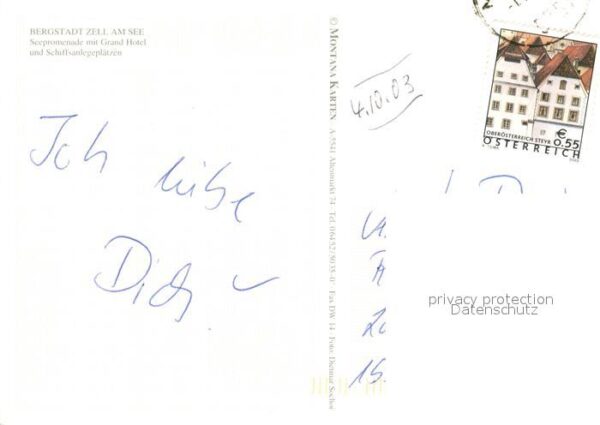 BERGSTADT ZELL AM SEE
Seepromenade mit Grand Hotel
und Schiffsanlegeplätzen
Ich liebe
Dich
© MONTANA KARTEN A-5541 Altenmarkt 74 · Tel. 06452/5035-0 Fax DW 14 Foto: Dietmar Sochor
4.10.03
OBERÖSTERREICH STEYR
€
0.55
ÖSTERREICH
privacy protection
Datenschutz
15.